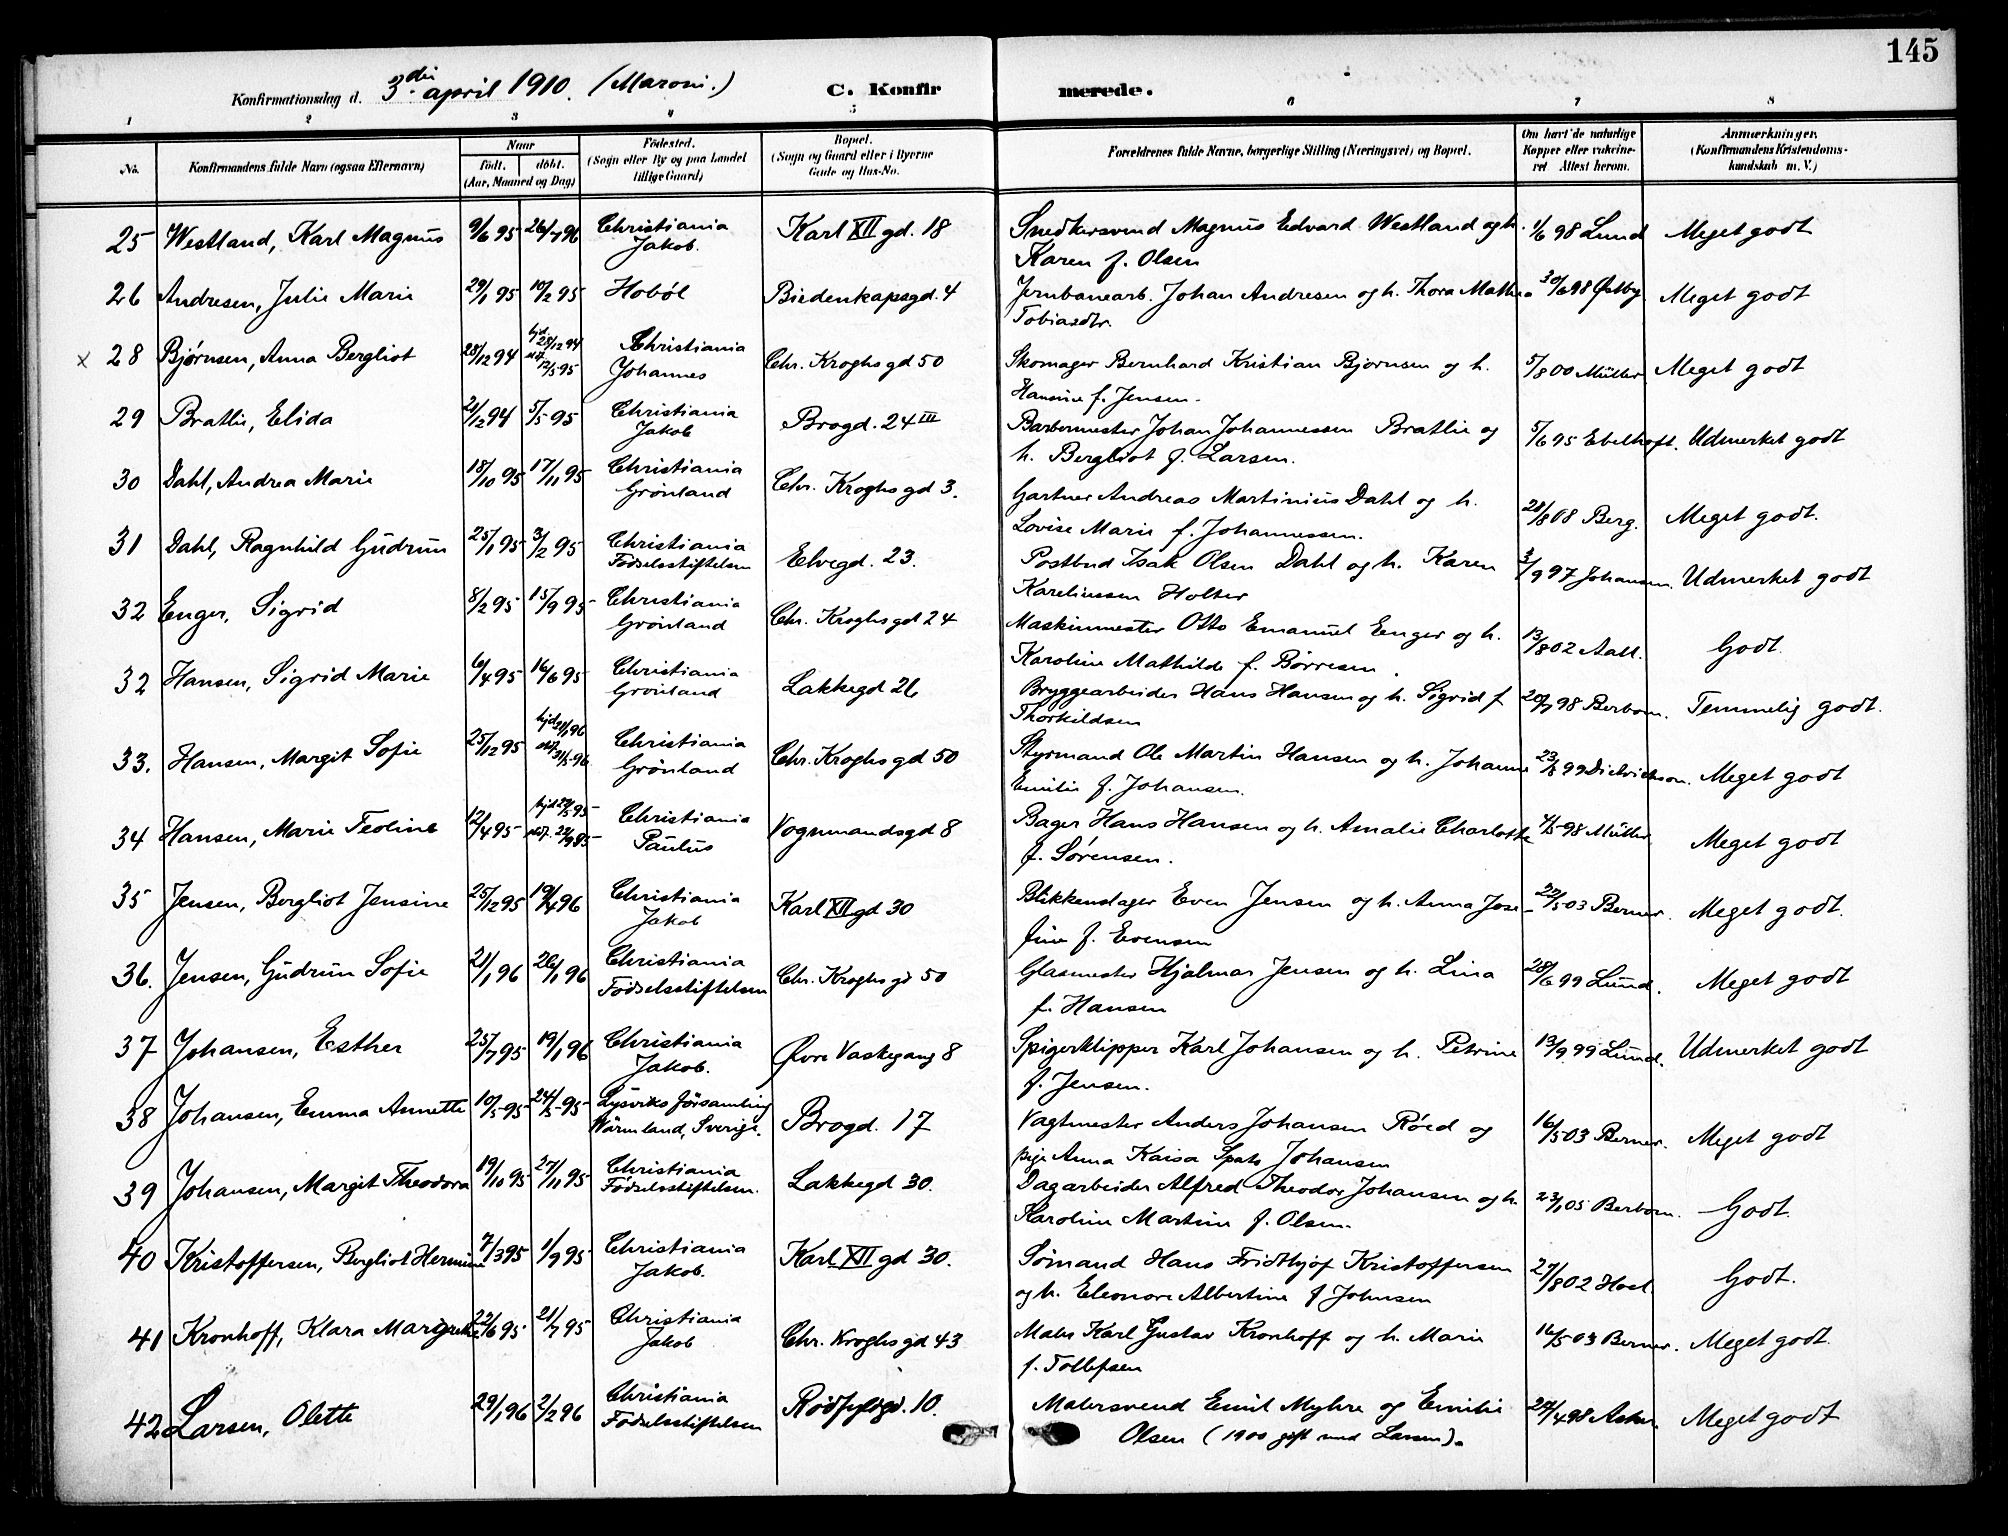 145
Konfirmationsdag d. 3die april 1910. (Maroni.) C. Konfirmerede.
1 2 3 4 5 6 7 8
No. Konfirmandens fulde Navn (ogsaa Efternavn) Naar født. døbt. (Aar, Maaned og Dag) Fødested. (Sogn eller By og paa Landet tillige Gaard) Bopæl. (Sogn og Gaard eller i Byerne Gade og Hus-No. Forældrenes fulde Navne, borgerlige Stilling (Næringsvei) og Bopæl. Om havt de naturlige Kopper eller vakcineret Attest herom. Anmærkninger. (Konfirmandens Kristendomskundskab m. V.)
25 Westland, Karl Magnus 9/6 95 26/7 96 Christiania Jakob. Karl XII gd. 18 Snedkersvend Magnus Edvard Westland og h. Karen f. Olsen 1/6 98 Lund Meget godt
26 Andresen, Julie Marie 29/1 95 10/2 95 Hobøl Biedenkapsgd. 4 Jernbanearb. Johan Andresen og h. Thora Mathea Tobiasdtr. 30/6 98 Østby Meget godt
x 28 Bjørnsen, Anna Bergliot 28/12 94 hjd. 28/12 94 12/5 95 Christiania Johannes Chr. Kroghs gd 50 Skomager Bernhard Kristian Bjørnsen og h. Hansine f. Jensen. 5/8 00 Müller Meget godt
29 Bratlie, Elida 21/12 94 5/5 95 Christiania Jakob Brogd. 24 III Barbermester Johan Johannessen Bratlie og h. Bergliot f. Larsen. 5/6 95 Ebeltoft. Udmerket godt
30 Dahl, Andrea Marie 18/10 95 17/11 95 Christiania Grønland Chr. Kroghs gd 3. Gartner Andreas Martinius Dahl og h. Lovise Marie f. Johannessen. 28/8 08 Berg. Meget godt.
31 Dahl, Ragnhild Gudrun 25/1 95 3/2 95 Christiania Fødselsstiftelsen Elvegd. 23. Postbud Isak Olsen Dahl og h. Karen Karelinssen Holter 3/9 97 Johansen. Udmerket godt
32 Enger, Sigrid 8/2 95 15/9 95 Christiania Grønland Chr. Kroghs gd 24 Maskinmester Otto Emanuel Enger og h. Karoline Mathilde f. Børresen. 13/8 02 Aall. Godt.
32 Hansen, Sigrid Marie 6/4 95 16/6 95 Christiania Grønland Lakkegd 26 Bryggearbeider Hans Hansen og h. Sigrid f Thorkildsen 20/7 98 Berbom. Temmelig godt.
33. Hansen, Margit Sofie 25/12 95 hjd 28/1 96 31/5 96 Christiania Grønland Chr. Kroghs gd 50 Styrmand Ole Martin Hansen og h. Johanne Emilie f. Johansen. 23/8 99 Dietrichson. Meget godt
34 Hansen, Marie Teoline 12/4 95 Christiania Paulus Vognmandsgd 8 Bager Hans Hansen og h. Amalie Charlotte f. Sørensen. 98 Müller Meget godt
35 Jensen, Bergliot Jensine 25/12 95 19/4 96 Christiania Jakob Karl XII gd 30 Blikkenslager Even Jensen og h. Anna Josefine f. Evensen 22/5 03 Berner. Meget godt.
36. Jensen, Gudrun Sofie 21/1 96 26/1 96 Christiania Fødselsstiftelsen Chr. Kroghs gd 50 Glasmester Hjalmar Jensen og h. Lina f. Hansen 28/6 99 Lund. Meget godt
37 Johansen, Esther 25/7 95 19/1 96 Christiania Jakob. Øvre Vaskegang 8 Spigerklipper Karl Johansen og h. Petrine f. Jensen. 13/9 99 Lund. Udmerket godt
38 Johansen, Emma Annette 10/5 95 24/5 95 Lysviks församling Wärmland, Sverige. Brogd. 17 Vagtmester Anders Johansen Röed og pige Anna Kaisa Johansen 16/5 03 Berner. Meget godt
39 Johansen, Margit Theodora 19/10 95 27/11 95 Christiania Fødselsstiftelsen. Lakkegd 30. Dagarbeider Alfred Theodor Johansen og h. Karoline Martine f. Olsen. 23/1 05 Berbom. Godt.
40 Kristoffersen, Bergliot Hermine 7/3 95 1/9 95 Christiania Jakob. Karl XII gd 30. Sømand Hans Fridthjof Kristoffersen og h. Eleonore Albertine f Johnsen 27/8 02 Hoel. Godt.
41 Kronhoff, Klara Margrethe 22/6 95 21/7 95 Christiania Jakob Chr. Kroghs gd 43 Maler Karl Gustav Kronhoff og h. Marie f. Tollefsen 16/5 03 Berner. Meget godt.
42 Larsen, Olette 29/1 96 2/2 96 Christiania Fødselsstiftelsen Rødfyldgd. 10. Malersvend Emil Myhre og Emilie Olsen (1900 gift med Larsen). 27/4 98 Aaker. Meget godt